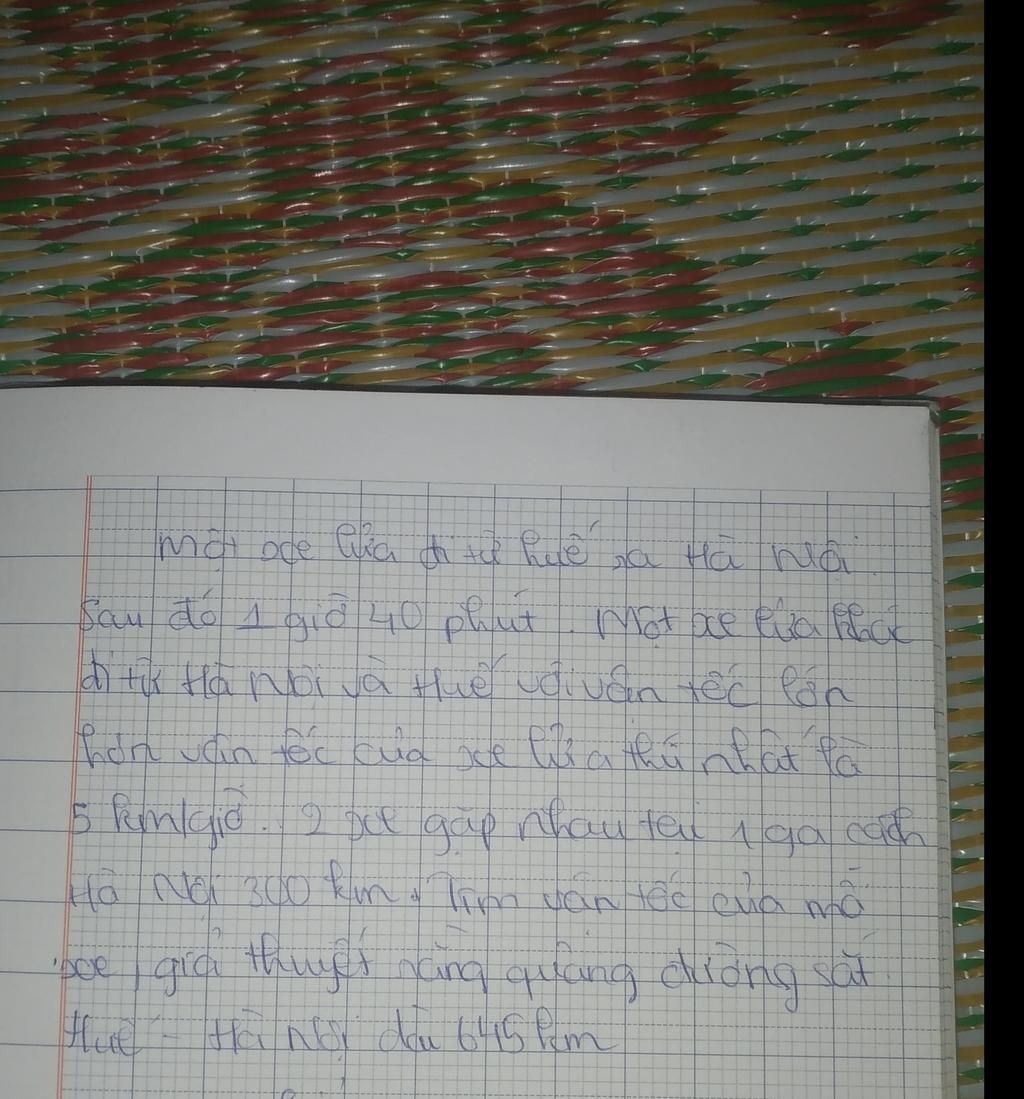 Một xe lửa đi từ huế ra Hà Nội.
Sau đó 1 giờ 40 phút. Một xe lửa khác
đi từ Hà Nội và Huế với vận tốc lớn
hơn vận tốc của xe lửa thứ nhất là
5 km/giờ. 2 xe gặp nhau tại 1 ga cách
Hà Nội 300 km. Tìm vận tốc của mỗ
xe, giả thuyết rằng quãng đường sắt
Huế - Hà Nội dài 645 km